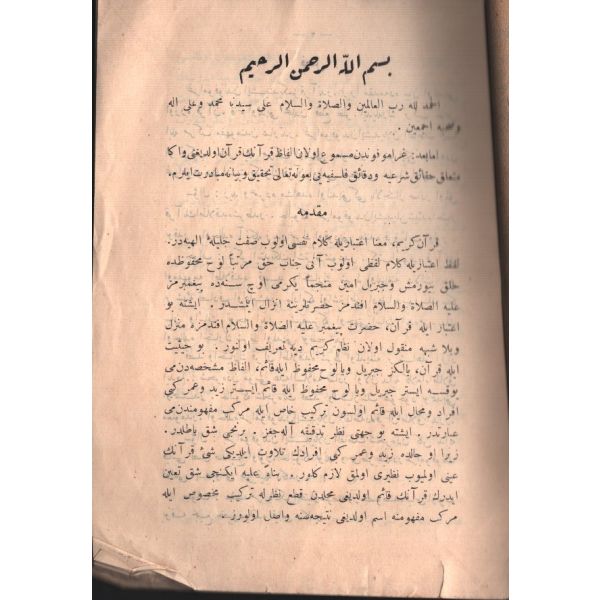 بسم الله الرحمن الرحيم
الحمد لله رب العالمين والصلاة والسلام على سيدنا محمد وعلى آله
وصحبه اجمعين .
امابعد : غراموفوندن مسموع اولان الفاظ قرآنك قرآن اولديغنى واكا
متعلق حقائق شرعيه ودقائق فلسفيه يى بعونه تعالى تحقيق وبيانه مبادرت ايلرم.
مقدمه
قرآن كريم، معنا اعتباريله كلام نفسى اولوب صفت جليلهٔ الهيه در.
لفظ اعتباريله كلام لفظى اولوب آنى جناب حق مرتباً لوح محفوظده
خلق بيورمش وجبريل امين منجماً يكرمى اوچ سنه ده پيغمبرمز
عليه الصلاة والسلام افندمز حضرتلرينه انزال ايتمشدر . ايشته بو
اعتبار ايله قرآن، حضرت پيغمبر عليه الصلاة والسلام افندمزه منزل
وبلا شبهه منقول اولان نظم كريم ديه تعريف اولنور . بو حيثيت
ايله قرآن، يالكز جبريل ويا لوح محفوظ ايله قائم، الفاظ مشخصه دن مى
يوقسه ايستر جبريل ويا لوح محفوظ ايله قائم ايستر زيد وعمر كبى
افراد ومحال ايله قائم اولسون تركيب خاص ايله مركب مفهومندن مى
عبارتدر . ايشته بو جهتى نظر تدقيقه آله جغز . برنجى شق باطلدر.
زيرا او حالده زيد وعمر كبى افرادك تلاوت ايلديكى شئ قرآنك
عينى اولميوب نظيرى اولمق لازم كلور . بناءً عليه ايكنجى شق تعين
ايدرك قرآنك قائم اولديغى محلدن قطع نظرله تركيب مخصوص ايله
مركب مفهومنه اسم اولديغى نتيجه سنه واصل اولورز .